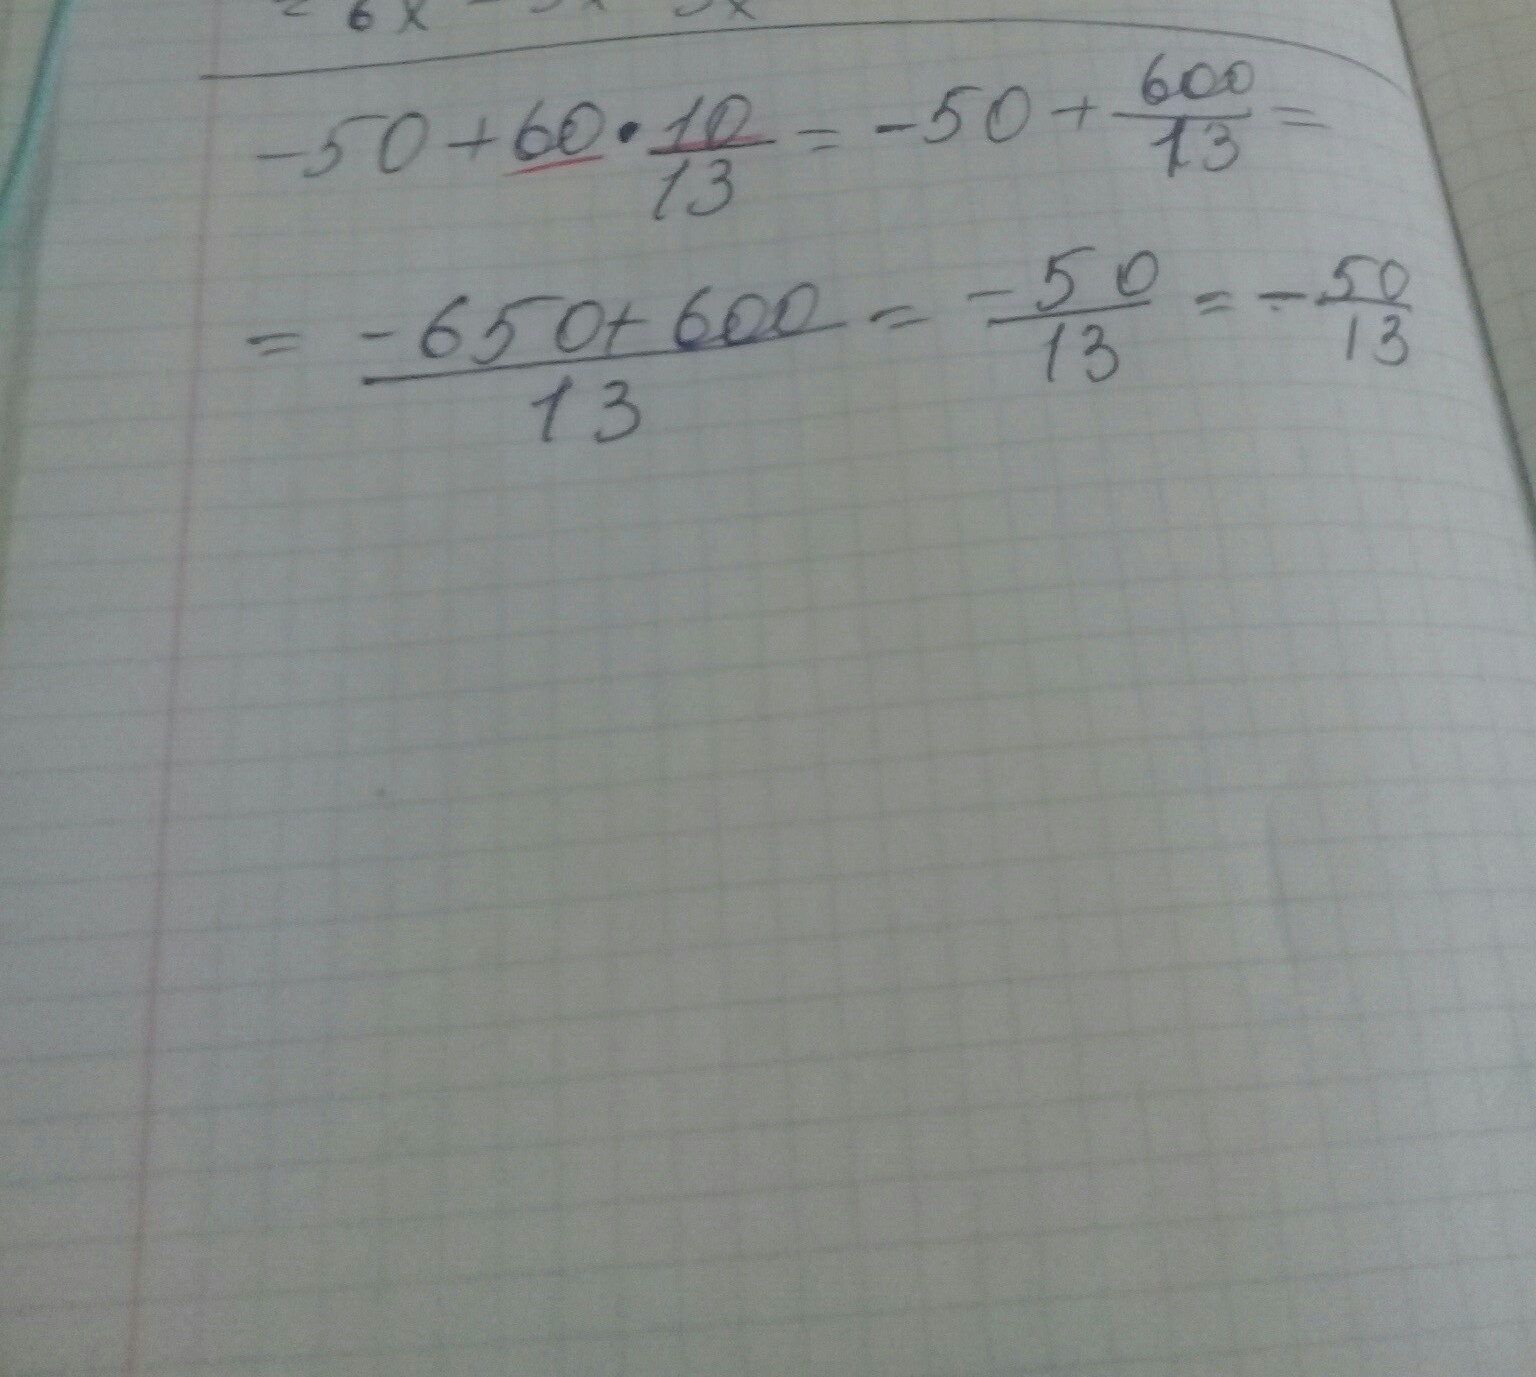 6x
-50 + 60 · 10/13 = -50 + 600/13 =
= -650 + 600/13 = -50/13 = -50/13